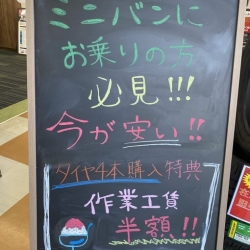 ミニバンに
お乗りの方
必見!!!
今が安い!!
タイヤ4本購入特典
作業工賃
半額!!